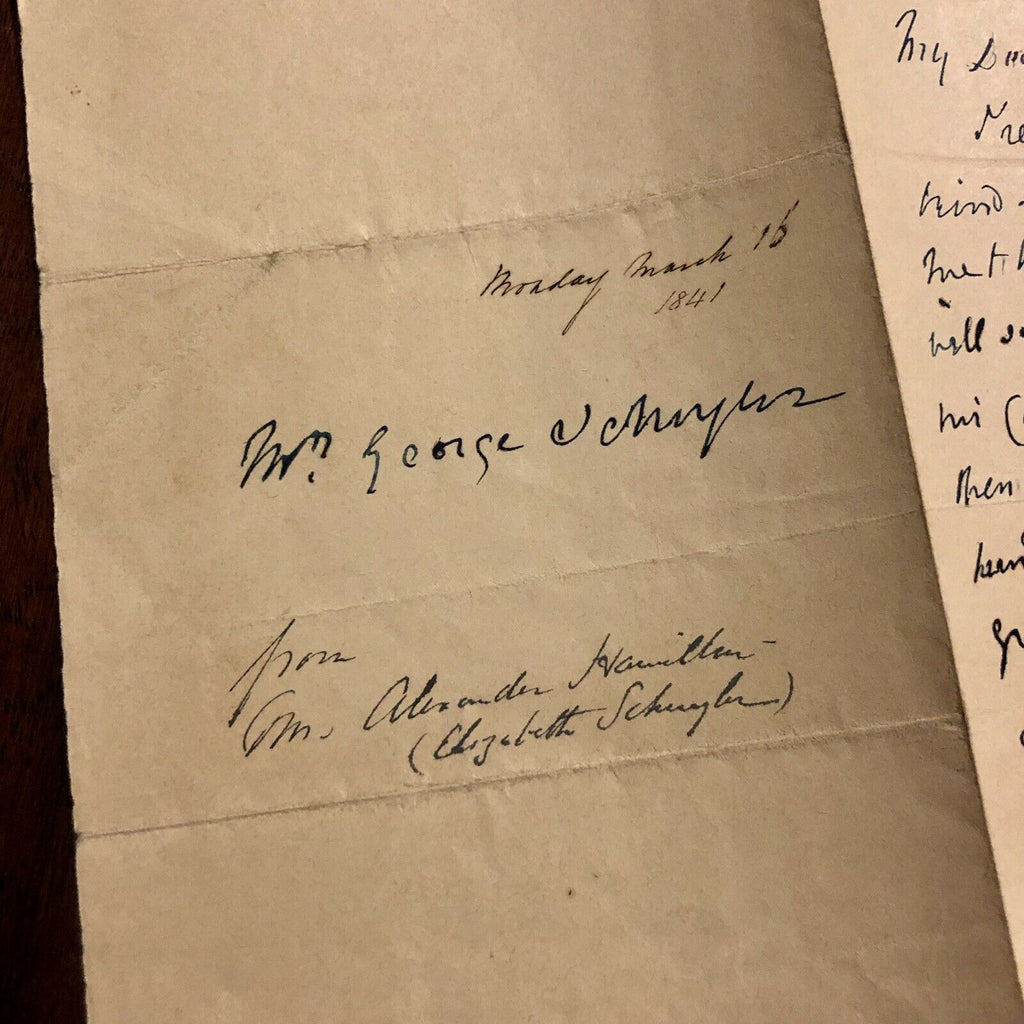 Monday March 16
1841
Mr. George Schuyler
from
Mrs. Alexander Hamilton
(Elizabeth Schuyler)
My
kind
me
will
his
then